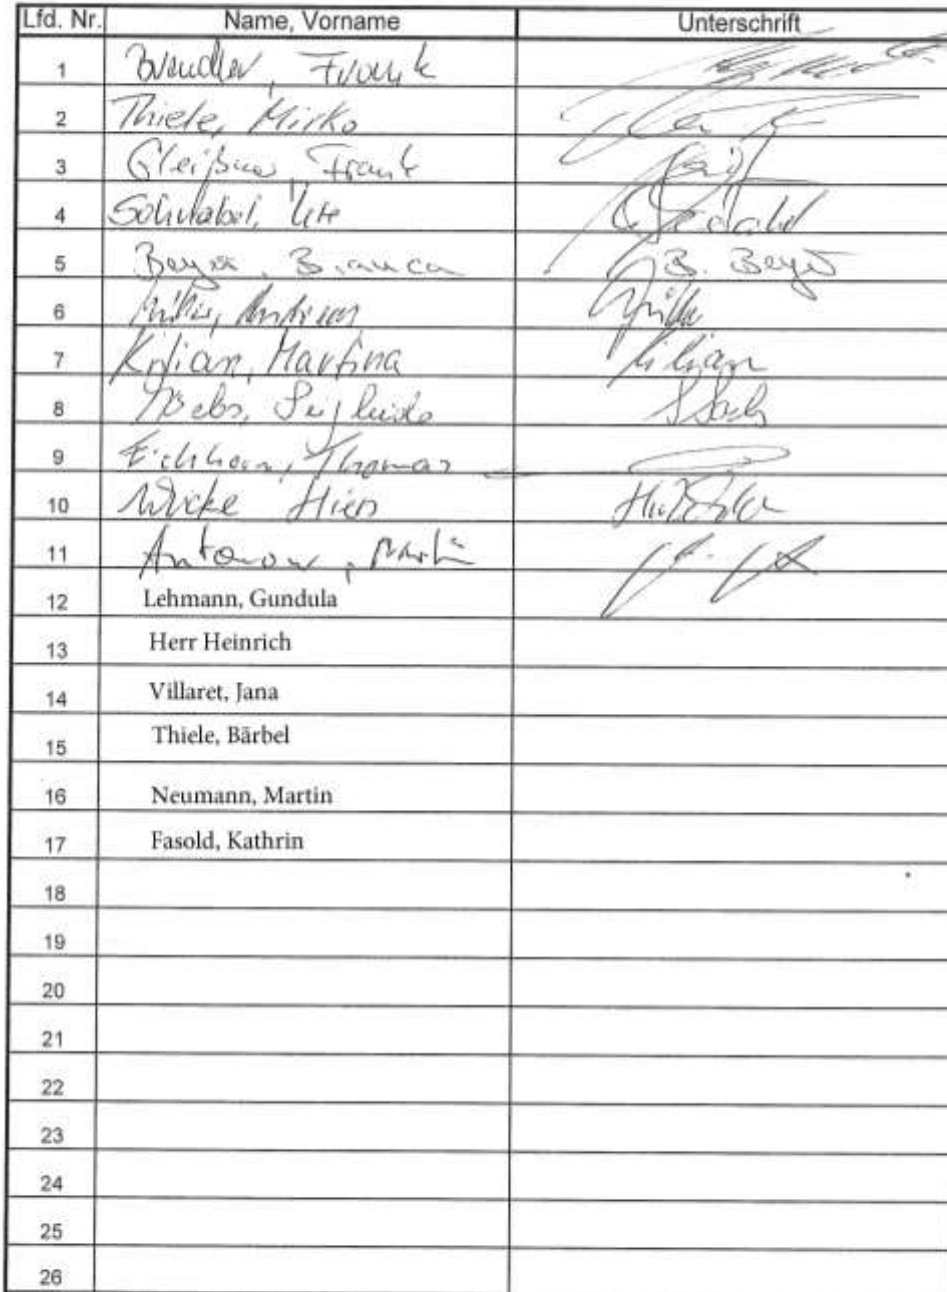 Lfd. Nr. Name, Vorname Unterschrift
1 Brendler, Frank
2 Thiele, Mirko
3 Gleißner, Frank
4 Schnabel, Ute
5 Beyer, Bianca B. Beyer
6 Andreas
7 Kilian, Martina Kilian
8
9 Eichhorn, Thomas
10 Wicke
11 Antonow, Martin
12 Lehmann, Gundula
13 Herr Heinrich
14 Villaret, Jana
15 Thiele, Bärbel
16 Neumann, Martin
17 Fasold, Kathrin
18
19
20
21
22
23
24
25
26